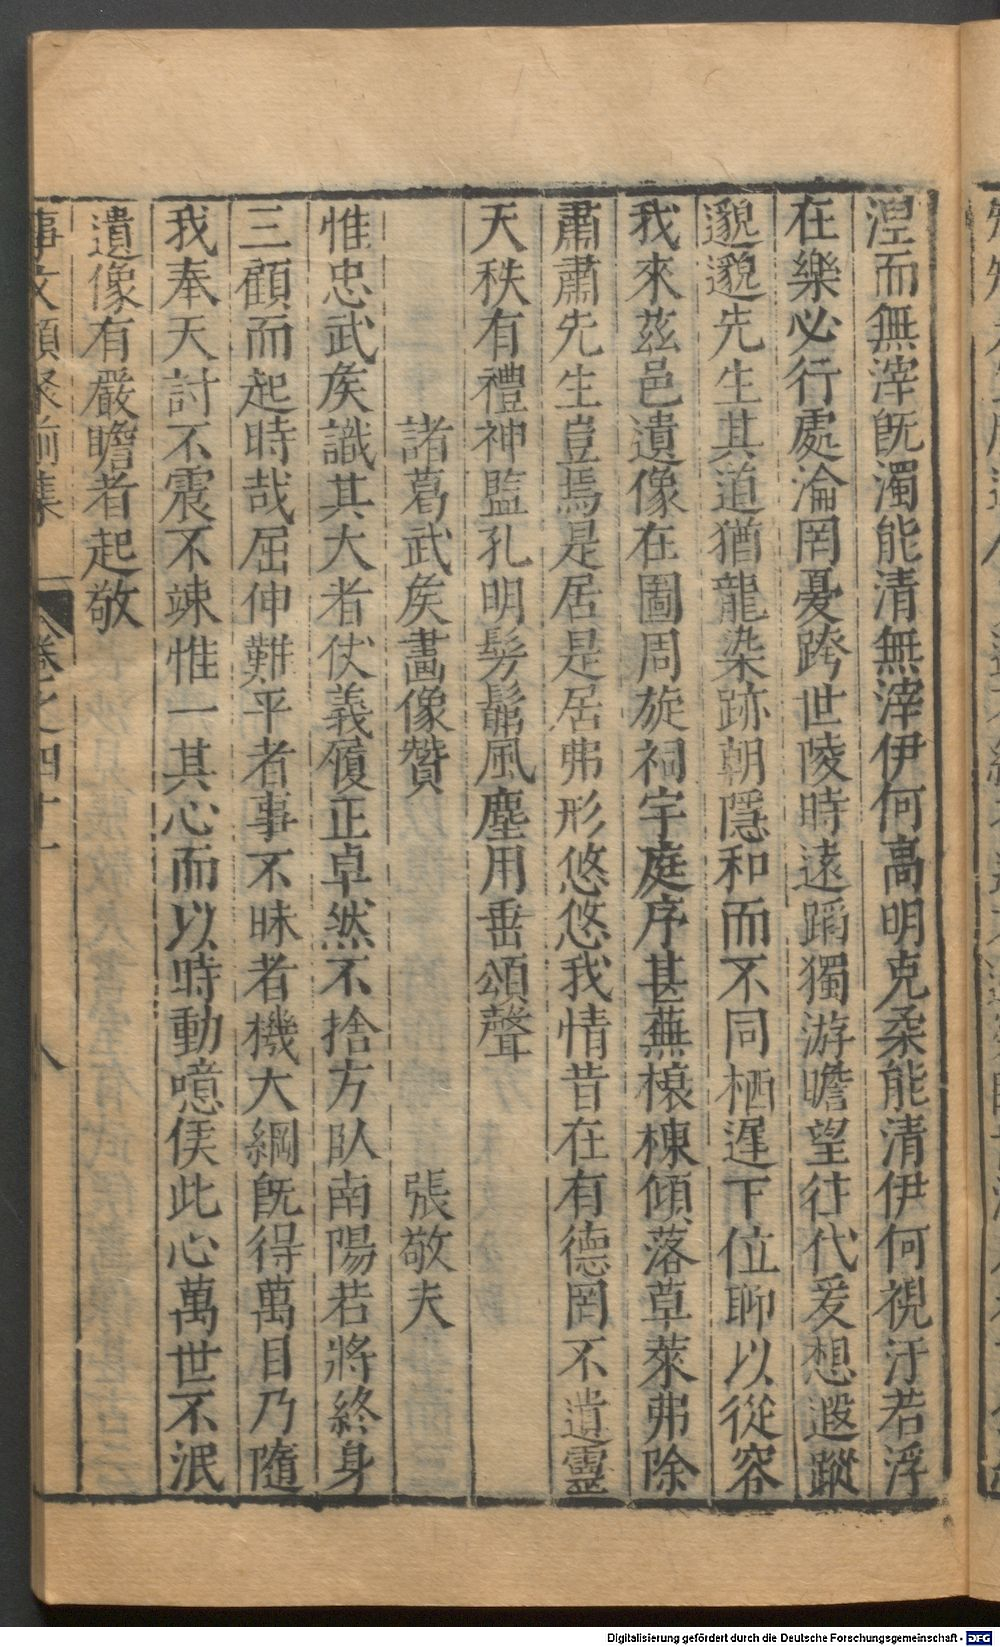 涅而無滓旣濁能清無滓伊何高明克柔能清伊何視汙若浮
在樂必行處淪罔憂跨世陵時遠蹈獨游瞻望往代爰想遐蹤
邈邈先生其道猶龍染跡朝隱和而不同栖遲下位聊以從容
我來茲邑遺像在圖周旋祠宇庭序甚蕪榱棟傾落草萊弗除
肅肅先生豈焉是居是居弗形悠悠我情昔在有德罔不遺靈
天秩有禮神監孔明髣髴風塵用垂頌聲
諸葛武矦畫像贊 張敬夫
惟忠武矦識其大者仗義履正卓然不捨方臥南陽若將終身
三顧而起時哉屈伸難平者事不昧者機大綱旣得萬目乃隨
我奉天討不震不竦惟一其心而以時動噫侯此心萬世不泯
遺像有嚴瞻者起敬
事文類聚前集 卷之四十一 八
Digitalisierung gefördert durch die Deutsche Forschungsgemeinschaft - DFG